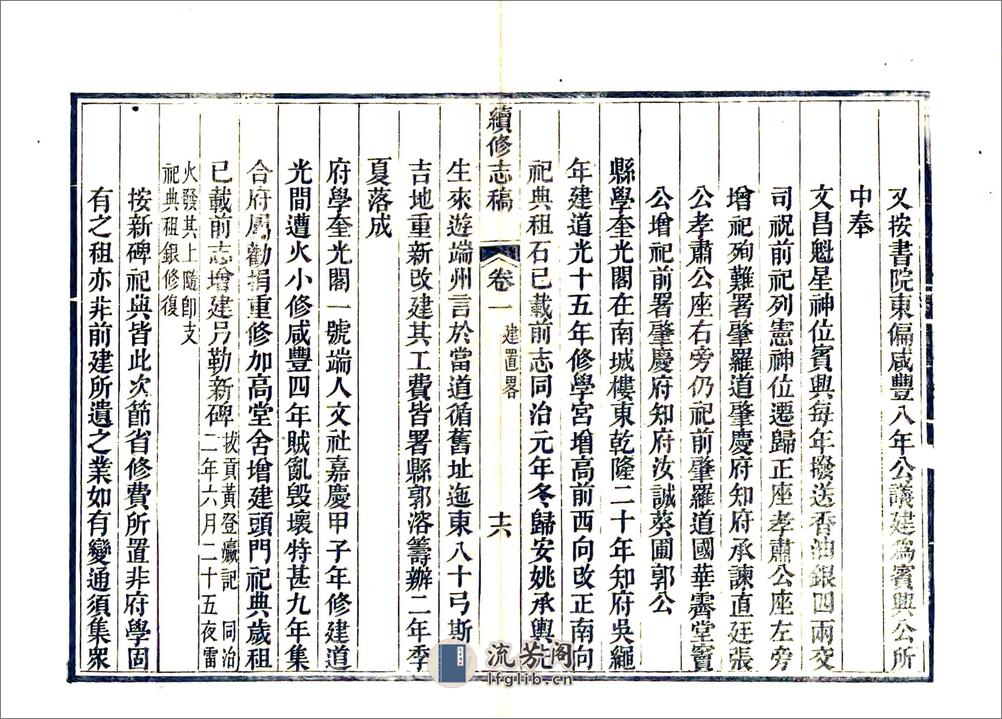 又按書院東偏咸豐八年公議建爲賓興公所
中奉
文昌魁星神位賓興每年撥送香油銀四兩交
司祝前祀列憲神位遷歸正座孝肅公座左旁
增祀殉難署肇羅道肇慶府知府承諫直廷張
公孝肅公座右旁仍祀前肇羅道國華霽堂竇
公增祀前署肇慶府知府汝誠葵圃郭公
縣學奎光閣在南城樓東乾隆二十年知府吳繩
年建道光十五年修學宮增高前西向改正南向
祀典租石已載前志同治元年冬歸安姚承輿先
續修志稿
卷一
建置畧
十六
生來遊端州言於當道循舊址迤東八十弓斯
吉地重新改建其工費皆署縣郭溶籌辦二年季
夏落成
府學奎光閣一號端人文社嘉慶甲子年修建道
光間遭火小修咸豐四年賊亂毀壞特甚九年集
合府屬勸捐重修加高堂舍增建頭門祀典歲租
已載前志增建另勒新碑
拔貢黃登瀛記 同治
二年六月二十五夜雷
火發其上隨即支
祀典租銀修復
按新碑祀典皆此次節省修費所置非府學固
有之租亦非前建所遺之業如有變通須集衆
流芳阁
lfglib.cn